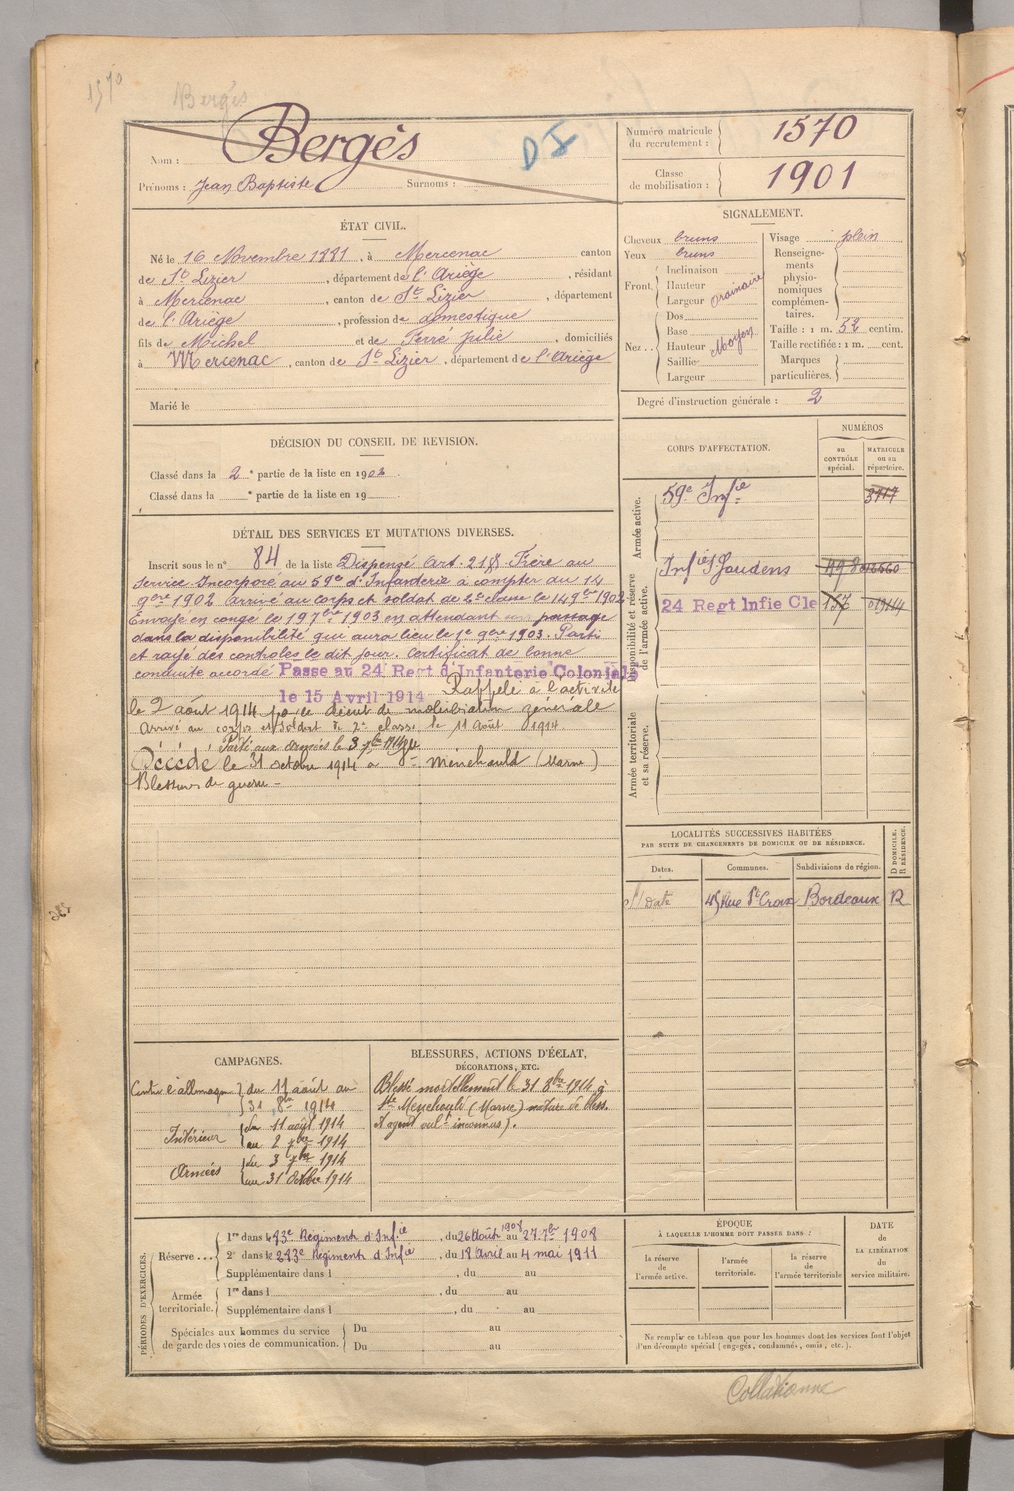 1570
Bergès
Nom : Bergès
D I
Prénoms : Jean Baptiste Surnoms :
Numéro matricule du recrutement : 1570
Classe de mobilisation : 1901
ÉTAT CIVIL.
Né le 16 Novembre 1881, à Mercenac canton
de St Lizier, département de l'Ariège, résidant
à Mercenac, canton de St Lizier, département
de l'Ariège, profession de domestique
fils de Michel et de Ferré Julie, domiciliés
à Mercenac, canton de St Lizier, département de l'Ariège
Marié le
SIGNALEMENT.
Cheveux bruns
Yeux bruns
Front. Inclinaison
Hauteur
Largeur Ordinaire
Nez.. Dos
Base
Hauteur Moyen
Saillie
Largeur
Visage plein
Renseignements physionomiques complémentaires.
Taille : 1 m. 52 centim.
Taille rectifiée : 1 m. cent.
Marques particulières.
Degré d'instruction générale : 2
DÉCISION DU CONSEIL DE REVISION.
Classé dans la 2e partie de la liste en 1902.
Classé dans la e partie de la liste en 19
DÉTAIL DES SERVICES ET MUTATIONS DIVERSES.
Inscrit sous le n° 84 de la liste Dispensé Art. 21 § Frère au
service. Incorporé au 59e d'Infanterie à compter du 14
9bre 1902 arrivé au corps et soldat de 2e classe le 14 9bre 1902
Envoyé en congé le 19 7bre 1903 en attendant son passage
dans la disponibilité qui aura lieu le 1er 9bre 1903. Parti
et rayé des contrôles le dit jour. Certificat de bonne
conduite accordé Passé au 24 Regt d'Infanterie Coloniale
le 15 Avril 1914 Rappelé à l'activité
le 2 août 1914 par le décret de mobilisation générale
Arrivé au corps et Soldat de 2e classe le 11 Août 1914.
Parti aux armées le 3 7bre 1914
Décédé le 31 octobre 1914 à Ste Menehould (Marne)
Blessures de guerre -
CORPS D'AFFECTATION.
NUMÉROS
au CONTRÔLE spécial.
MATRICULE ou au répertoire.
Armée active.
59e Infie 3717
Disponibilité et réserve de l'armée active.
Infie St Gaudens
24 Regt Infie Cle 157 019114
Armée territoriale et sa réserve.
LOCALITÉS SUCCESSIVES HABITÉES
PAR SUITE DE CHANGEMENTS DE DOMICILE OU DE RÉSIDENCE.
Dates. Communes. Subdivisions de région. D DOMICILE. R RÉSIDENCE.
s/ Date 45 Rue Ste Croix Bordeaux R
CAMPAGNES.
Contre l'allemagne du 11 août au
31 8bre 1914
Intérieur du 11 août 1914
au 2 7bre 1914
Armées du 3 7bre 1914
au 31 Octobre 1914
BLESSURES, ACTIONS D'ÉCLAT,
DÉCORATIONS, ETC.
Blessé mortellement le 31 8bre 1914 à
Ste Menehould (Marne) nature de bless.
et agent vulnt inconnus).
PÉRIODES D'EXERCICES.
Réserve... 1re dans le 83e Régiment d'Infie, du 26 Août 1908 au 27 7bre 1908
2e dans le 283e Régiment d'Infie, du 18 Avril au 4 mai 1911
Supplémentaire dans l , du au
Armée territoriale. 1re dans l , du au
Supplémentaire dans l , du au
Spéciales aux hommes du service de garde des voies de communication. Du au
Du au
ÉPOQUE
À LAQUELLE L'HOMME DOIT PASSER DANS :
la réserve de l'armée active.
l'armée territoriale.
la réserve de l'armée territoriale
DATE
DE LA LIBÉRATION
du service militaire.
Ne remplir ce tableau que pour les hommes dont les services font l'objet
d'un décompte spécial (engagés, condamnés, omis, etc.).
Collationné